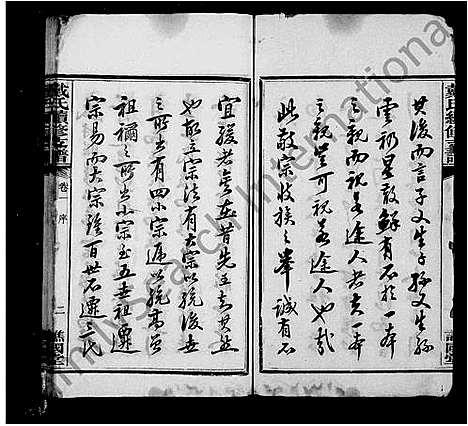 戴氏續修支譜
其後而言子又生子孫又生孫
雲礽星散鮮有不於一本
之親而視為途人者夫一本
之親豈可視為途人也哉
此敬宗收族之舉誠有不
宜緩者矣在昔先王知其然
也故立宗法有大宗以統後世
之所出有四小宗遞以統高曾
祖禰之所出小宗至五世祖遷
宗易而大宗雖百世不遷三代
戴氏續修支譜
卷一
序
二
譙國堂
FamilySearch International